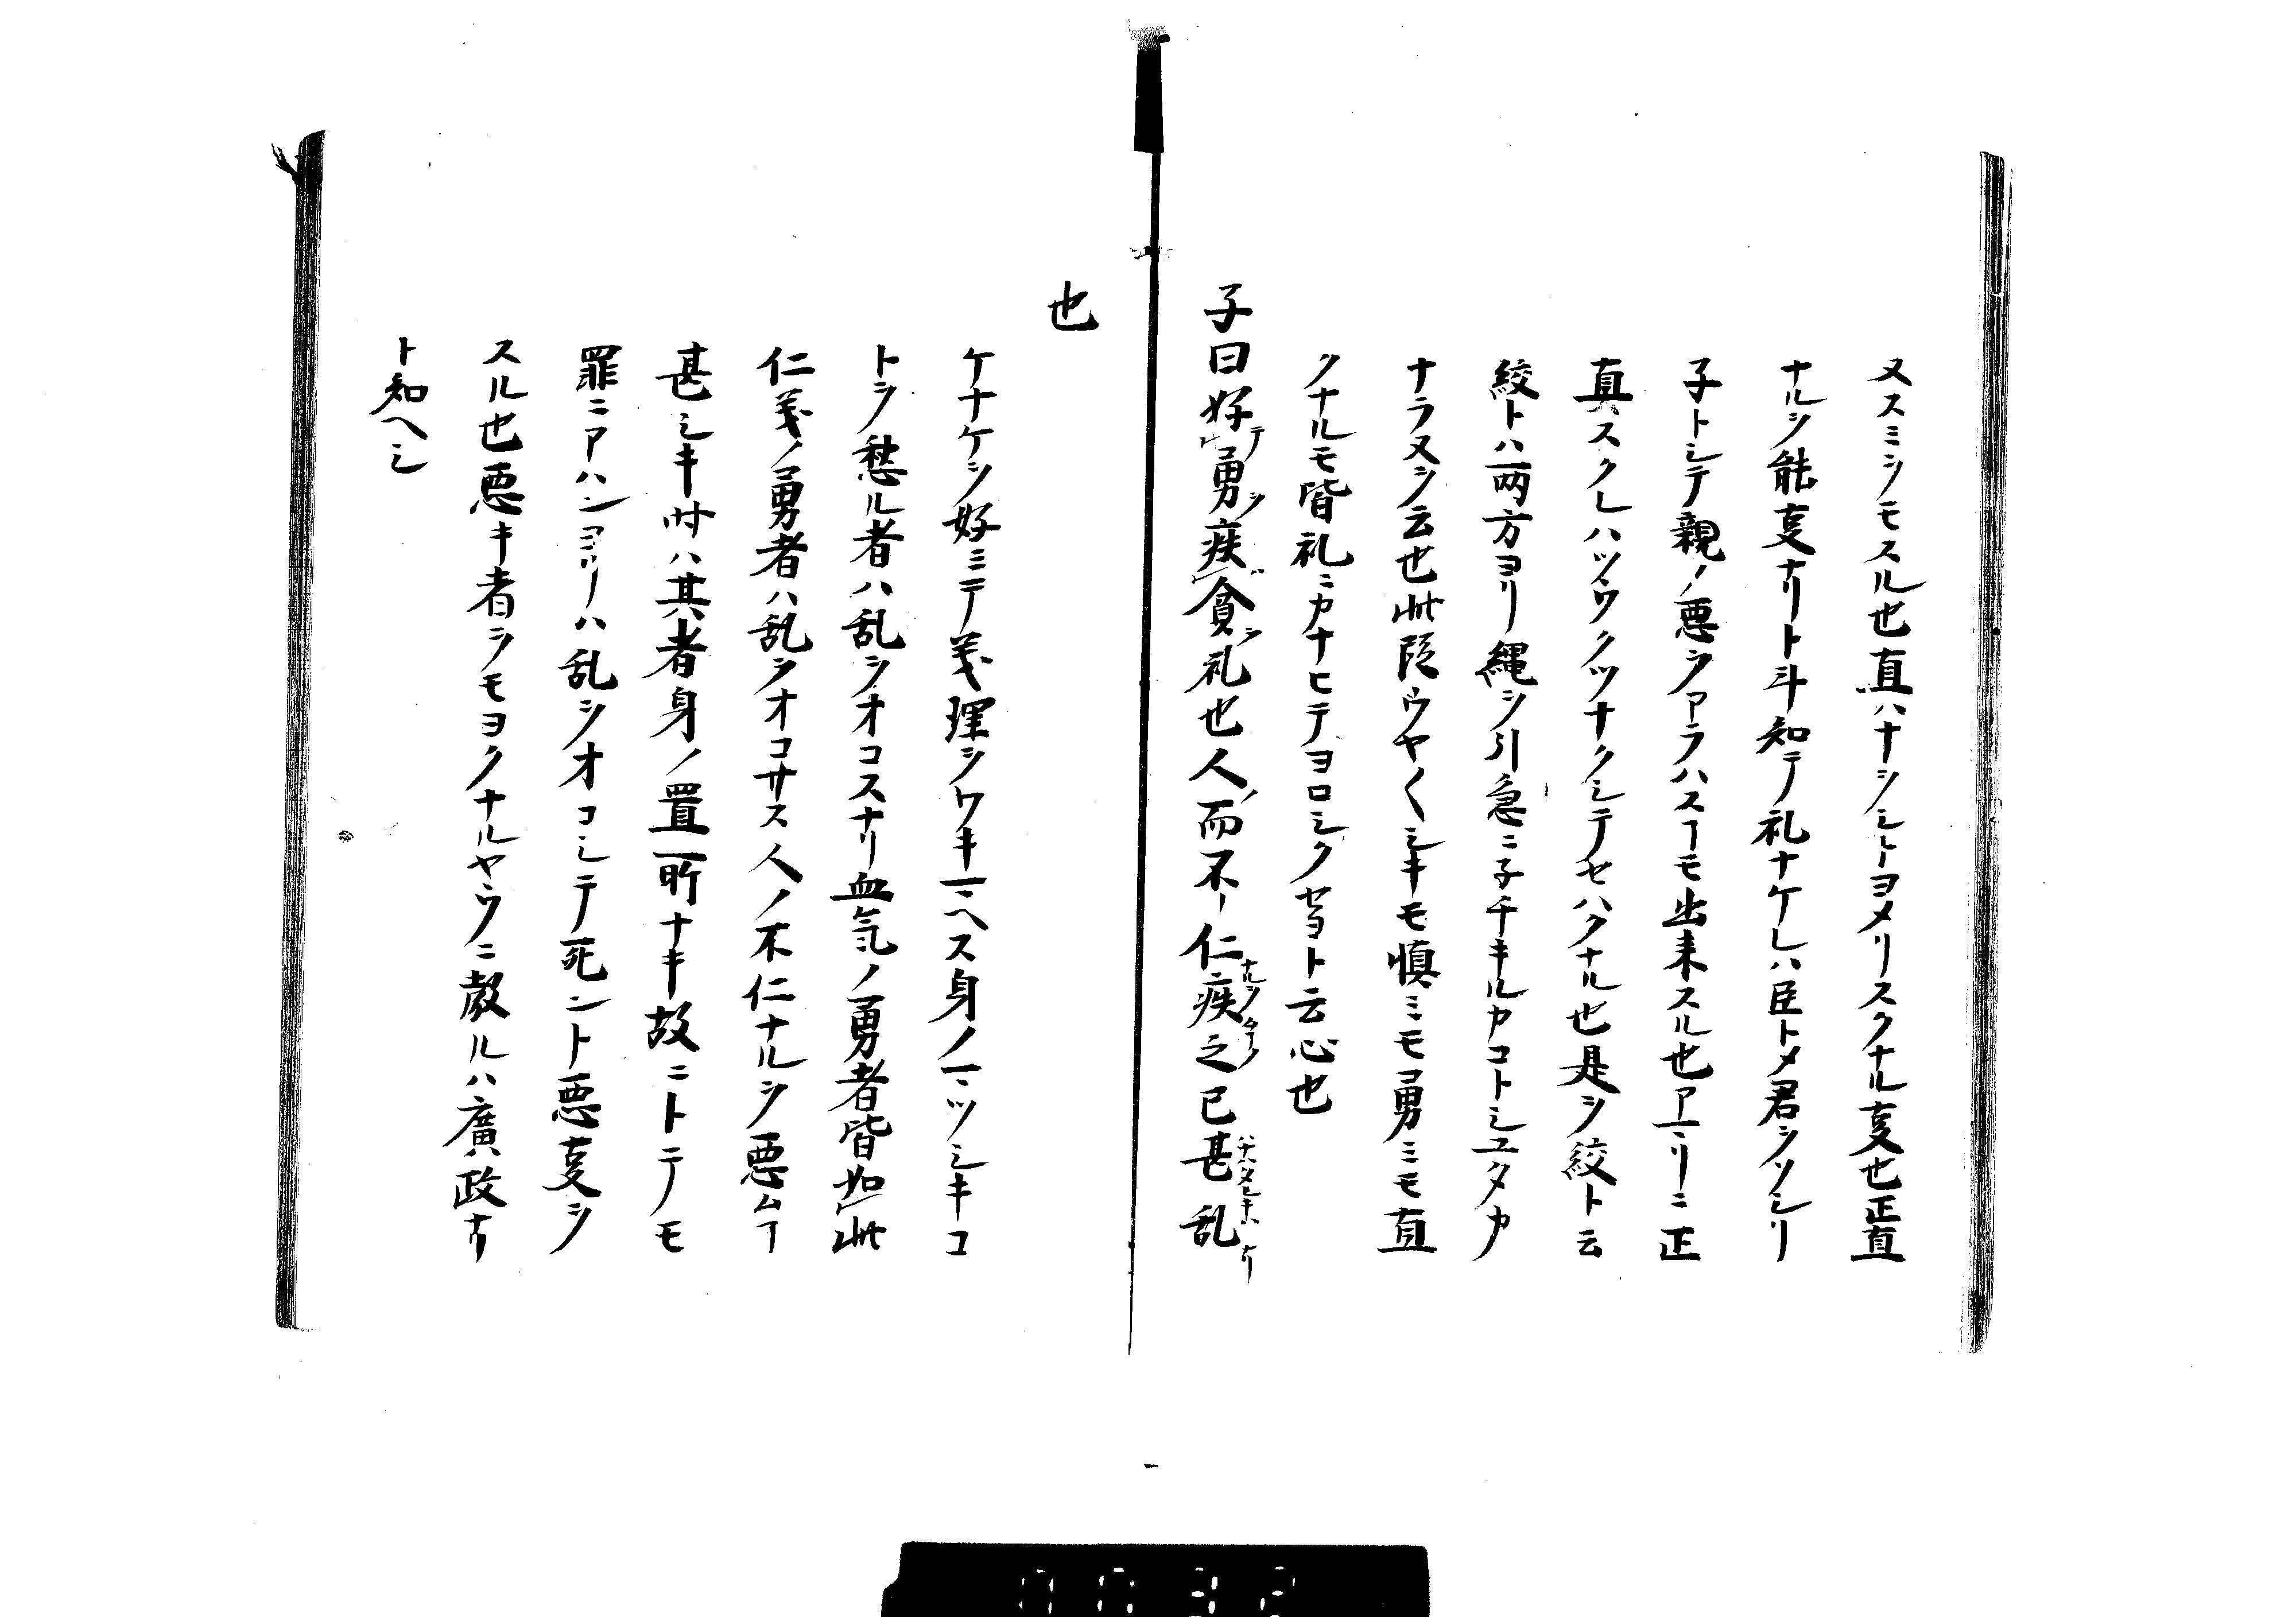 ヌスミヲモスル也直ハナヲシトヨメリスクナル叓也正直
ナルヲ能叓ナリト斗知テ礼ナケレハ臣トメ君ヲソシリ
子トシテ親ノ悪ヲアラハスヿモ出来スル也アマリニ正
直スクレハツヽクツナクシテセハクナル也是ヲ絞ト云
絞トハ両方ヨリ縄ヲ引急ニ子チキルカコトシユタカ
ナラヌヲ云也此段ウヤ〱シキモ慎ミモ勇ミモ直
クナルモ皆礼ニカナヒテヨロシクセヨト云心也
子曰好テ勇ヲ疾貧ヲ礼也人ノ而不仁ナルヲ疾之已甚乱ナリ
也
ケナケヲ好ミテ義理ヲワキマヘス身ノマツシキコ
トヲ愁ル者ハ乱ヲオコスナリ血気ノ勇者皆如此
仁義ノ勇者ハ乱ヲオコサス人ノ不仁ナルヲ悪ムヿ
甚シキ時ハ其者身ノ置所ナキ故ニトテモ
罪ニアハンヨリハ乱ヲオコシテ死ント悪叓ヲ
スル也悪キ者ヲモヨクナルヤウニ教ルハ廣政ナリ
ト知ヘシ